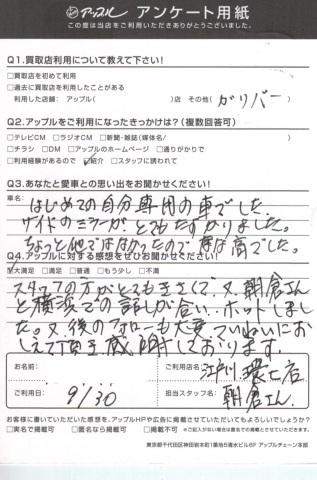 アップル アンケート用紙
この度は当店をご利用いただきありがとうございました。
Q1.買取店利用について教えて下さい!
□買取店を初めて利用
□過去に買取店を利用したことがある
利用した店舗: アップル( )店 その他( ガリバー
Q2.アップルをご利用になったきっかけは?(複数回答可)
□テレビCM □ラジオCM □新聞・雑誌(媒体名/ )
□チラシ □DM □アップルのホームページ □通りがかりで
□利用経験があるので ☑紹介 □スタッフに誘われて
Q3.あなたと愛車との思い出をお聞かせください!
車名:
はじめての自分専用の車でした。
サイドのミラーが、とてもたすかりました。
ちょっと他ではなかったので 席は高でした。
Q4.アップルに対する感想をぜひお聞かせください!
大満足 □満足 □普通 □もう少し □不満
スタッフの方がとてもきさくで、又、朝倉さん
と横浜での話しが合い、ホットしまし
た。又、後のフォローも大変ていねいにお
しえて頂き感謝しております。
お名前:
ご利用店名: 江戸川環七店
ご利用日: 9/30
担当スタッフ名: 朝倉さん
お客様に書いていただいた感想を、アップルHPや広告に掲載させていただいてもよろしいでしょうか?
□実名で掲載可 □匿名なら掲載可 □掲載不可 ※ご記入がない場合は匿名での掲載とさせていただきます。
東京都千代田区神田岩本町1番地5清水ビル6F アップルチェーン本部